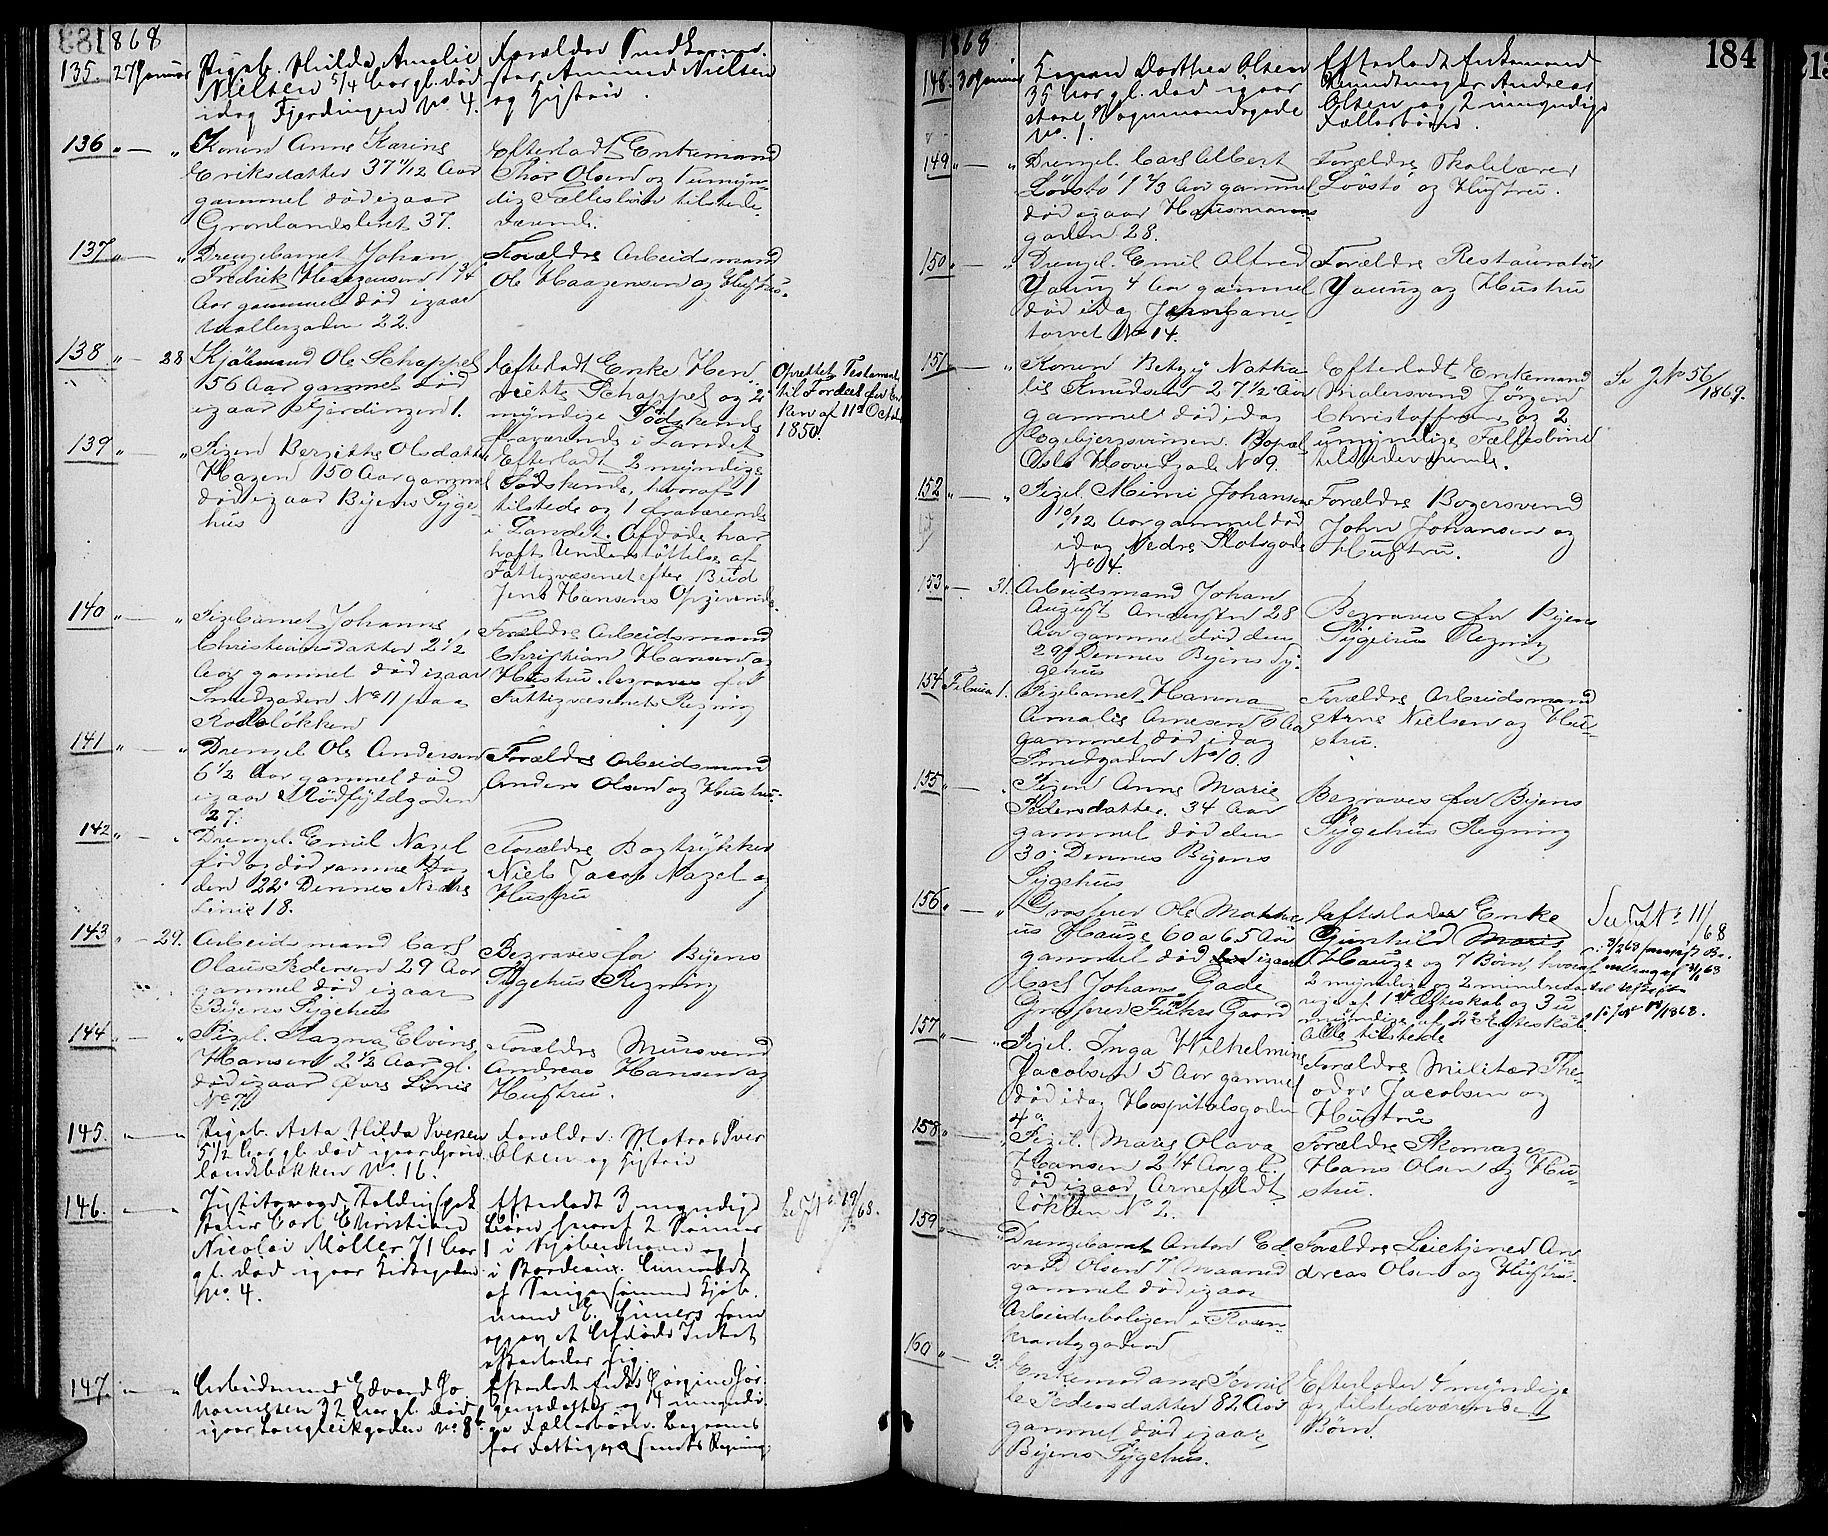 1868
135. 27 Januar Pigeb. Hilda Amalie Forældre
Nielsen 5/4 Aar gl. død Amund Nielsen
idag Fjerdingen No. 4. og Hustru.
136 " — " Konen Anne Karine Efterladt Enkemand
Eriksdatter 37 11/12 Aar Thor Olsen og 1 umyn-
gammel død igaar dig Fællesbarn tilstede-
Grønlandsleret 37. værende.
137 " — " Drengebarnet Johan Forældre Arbeidsmand
Fredrik Haagensen 1 3/4 Ole Haagensen og Hustru.
Aar gammel død igaar
Møllergaden 22.
138 " — 28 Kjøbmand Ole Schappel Efterladt Enke Hen-
56 Aar gammel død riette Schappel og 2
igaar Fjerdingen 1. myndige Sødskende
fraværende i Landet
Oprettet Testament
til Fordeel for En-
ken af 11te Octob.
1850.
139 " — " Pigen Bergitte Olsdatter Efterladt 2 myndige
Hagen 50 Aar gammel Sødskende, hvoraf 1
død igaar Byens Syge- tilstede og 1 fraværende
hus i Landet. Afdøde har
havt Understøttelse af
Fattigvæsenet efter Bud
Jens Hansens Opgivende.
140 " — " Pigebarnet Johanne Forældre Arbeidsmand
Christiansdatter 2 1/2 Christian Hansen og
Aar gammel død igaar Hustru. begraves for
Smedgaden No 11 paa Fattigvæsenets Regning
Rodeløkken
141 " — " Drengeb. Ole Andersen Forældre Arbeidsmand
6 1/2 Aar gammel død Anders Olsen og Hustru.
igaar Rødfyldgaden
27.
142 " — " Drengeb. Emil Nagel Forældre Bogtrykker
fød og død samme Dag Niels Jacob Nagel og
den 22. Dennes Nedre Hustru
Linie 18.
143 " — 29. Arbeidsmand Carl Begraves for Byens
Olaus Pedersen 29 Aar Sygehus Regning
gammel død igaar
Byens Sygehus
144 " — " Pigeb. Magna Elvine Forældre Mursvend
Hansen 2 1/2 Aar gl. Andreas Hansen og
død igaar Øvre Linie Hustru.
No 7
145. " — " Pigeb. Asta Hilda Iversen Forældre: Matros Iver
5 1/2 Aar gl. død igaar Grøn- Olsen og Hustru
landsbakken No. 16.
146. " — " Carl Christian Efterladt 3 myndige
Nicolai Møller 71 Aar Børn hvoraf 2 Sønner
gl. død igaar Kirkegaden 1 i Kjøbenhavn og 1
No. 4. i Bordeaux. Anmeldt
af Svigersønnen Kjøb-
mand E. Einers som
opgav at Afdøde Intet
efterlader sig.
147. " — " Arbeidsmand Edvard Jo- Efterladt Enke Jørgine Jør-
hannesen 32 Aar gl. død gensdatter og 4 umyndi-
igaar Langleikgaden No 8 ge Fællesbørn. Begraves
for Fattigvæsenets Regning.
184
1868
148. 30 Januar Konen Dorthea Olsen Efterladt Enkemand
35 Aar gl. død igaar Andreas
store Vognmandsgade Olsen og 2 umyndige
No. 1. Fællesbørn.
149 " — " Drengeb. Carl Albert Forældre Skolelærer
Løvstø 1 2/3 Aar gammel Løvstø og Hustru.
død igaar Hausmanns
gaden 28.
150 " — " Drengeb. Emil Alfred Forældre Restauratør
Young 4 Aar gammel Young og Hustru
død idag Jernbane-
torvet No 14.
151 " — " Konen Betzy Natha- Efterladt Enkemand
lie Knudsen 27 1/2 Aar Malersvend Jørgen
gammel død idag Christoffersen og 2
Egebjergsveien. Bopæl umyndige Fællesbørn
Oslo Hovedgade No 9. tilstedeværende.
Se J No 56/1869.
152 " — " Pigeb. Mimi Johansen Forældre Bogersvend
10/12 Aar gammel død John Johansen og
idag Nedre Slotsgade Hustru.
No 4.
153 " — 31. Arbeidsmand Johan Begraves for Byens
August Andersen 28 Sygehus Regning
Aar gammel død den
29de Dennes Byens Sy-
gehus
154 Februar 1. Pigebarnet Hanna Forældre Arbeidsmand
Amalie Arnesen 6 Aar Arne Nielsen og Hu-
gammel død idag stru.
Smedgaden No 10.
155 " — " Pigen Anne Marie Begraves for Byens
Pedersdatter 34 Aar Sygehus Regning
gammel død den
30. Dennes Byens
Sygehus
156 " — " Grosserer Ole Mathe- Efterlader Enke
us Hauge 60 a 65 Aar Gunhild Marie
gammel død igaar Hauge og 7 Børn, hvoraf
Carl Johans Gade 2 myndige og 2 mindreaa-
Grosserer Führs Gaard rige af 1ste Ægteskab og 3 u-
myndige af 2det Ægteskab.
Alle tilstede
See J No 11/68
157 " — " Pigeb. Inga Wilhelmine Forældre Militær The-
Jacobsen 5 Aar gammel odor Jacobsen og
død idag Hospitalsgaden Hustru
4.
158 " — " Pigeb. Mara Olava Forældre Skomager
Hansen 2 1/4 Aar gl. Hans Olsen og Hu-
død igaar Arnefeldt stru.
løkken No 2.
159 " — " Drengebarnet Anton Ed- Forældre Leiekjører An-
vard Olsen 7 Maaned dreas Olsen og Hustru.
gammel død igaar
Arbeiderboligen i Rosen-
krantzgaden
160 " — 3. Enkemadame Pernil- Efterlader 4 myndige
le Pedersdatter 82 Aar og tilstedeværende
gammel død igaar Børn.
Byens Sygehus.